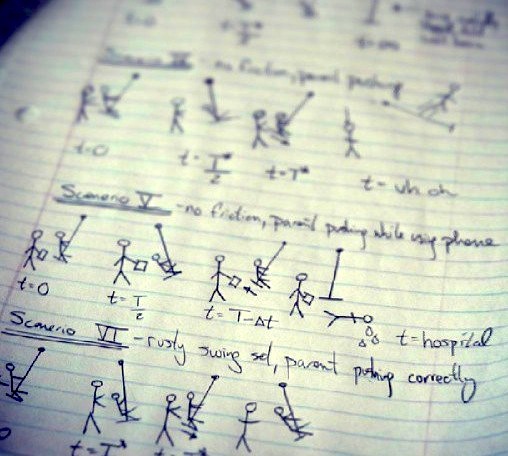 t=0
T
2
Scenario IV - no friction, parent pushing
t=0
t= T*
2
t=T*
t= uh oh
Scenario V - no friction, parent pushing while using phone
t=0
t= T
2
t= T-Δt
t=hospital
Scenario VI - rusty swing set, parent pushing correctly
t= T*
t= T*